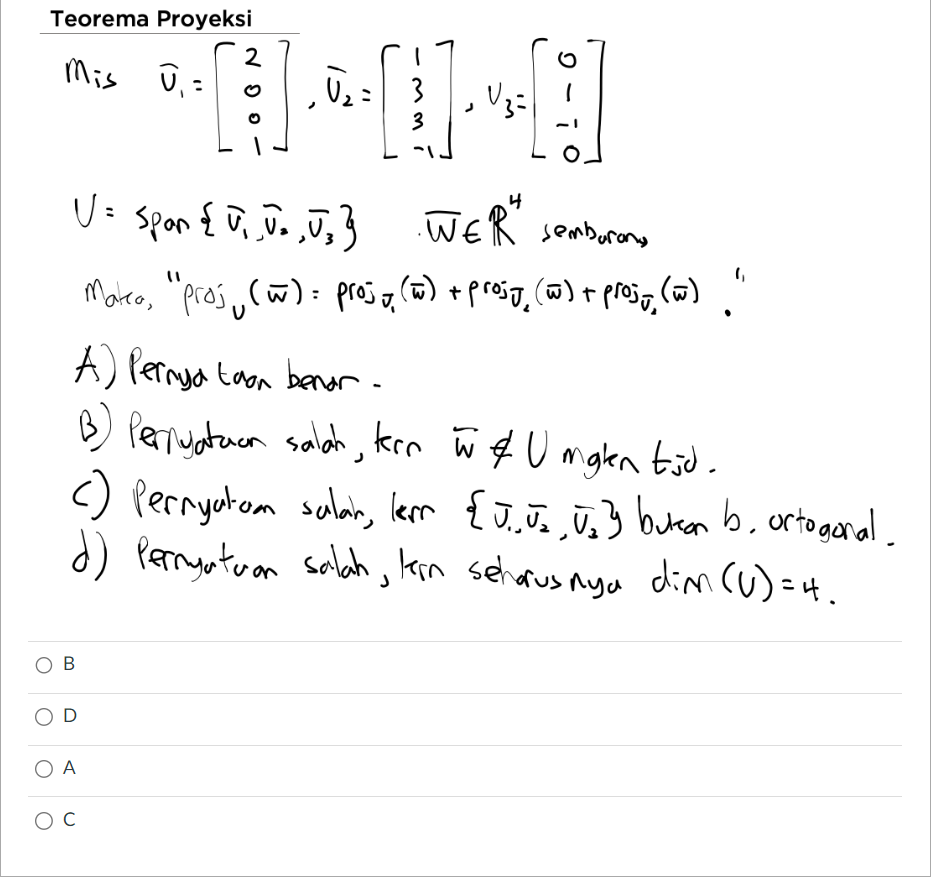 Teorema Proyeksi
Mis v̄₁ = [2 0 0 1], v̄₂ = [1 3 3 -1], v₃ = [0 1 -1 0]
U = span {v̄₁, v̄₂, v̄₃} . w̄ ∈ ℝ⁴ sembarang
Maka, "projᵤ(w̄) = proj v̄₁ (w̄) + proj v̄₂ (w̄) + proj v̄₃ (w̄) ."
A) Pernyataan benar.
B) Pernyataan salah, krn w̄ ∉ U mgkn tjd.
C) Pernyataan salah, krn {v̄₁, v̄₂, v̄₃} bukan b. ortogonal.
d) Pernyataan salah, krn seharusnya dim(U) = 4.
B
D
A
C